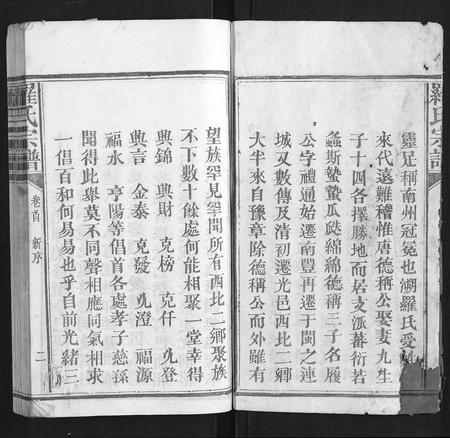 羅氏宗譜
靈足稱南州冠冕也溯羅氏受姓
來代遠難稽惟唐德稱公娶妻九生
子十四各擇勝地而居支派蕃衍若
螽斯蟄蟄瓜瓞綿綿德稱三子名履
公字禮通始遷南豐再遷于閩之連
城又數傳及清初遷光邑西北二鄉
大半來自豫章除德稱公而外雖有
望族罕見罕聞所有西北二鄉聚族
不下數十餘處何能相聚一堂幸得
興錦 興財 克榜 克仟 允登
興言 金泰 克發 允澄 福源
福水 亨陽等倡首各處孝子慈孫
聞得此舉莫不同聲相應同氣相求
一倡百和何易易也乎自前光緒三
羅氏宗譜
卷首 新序
二